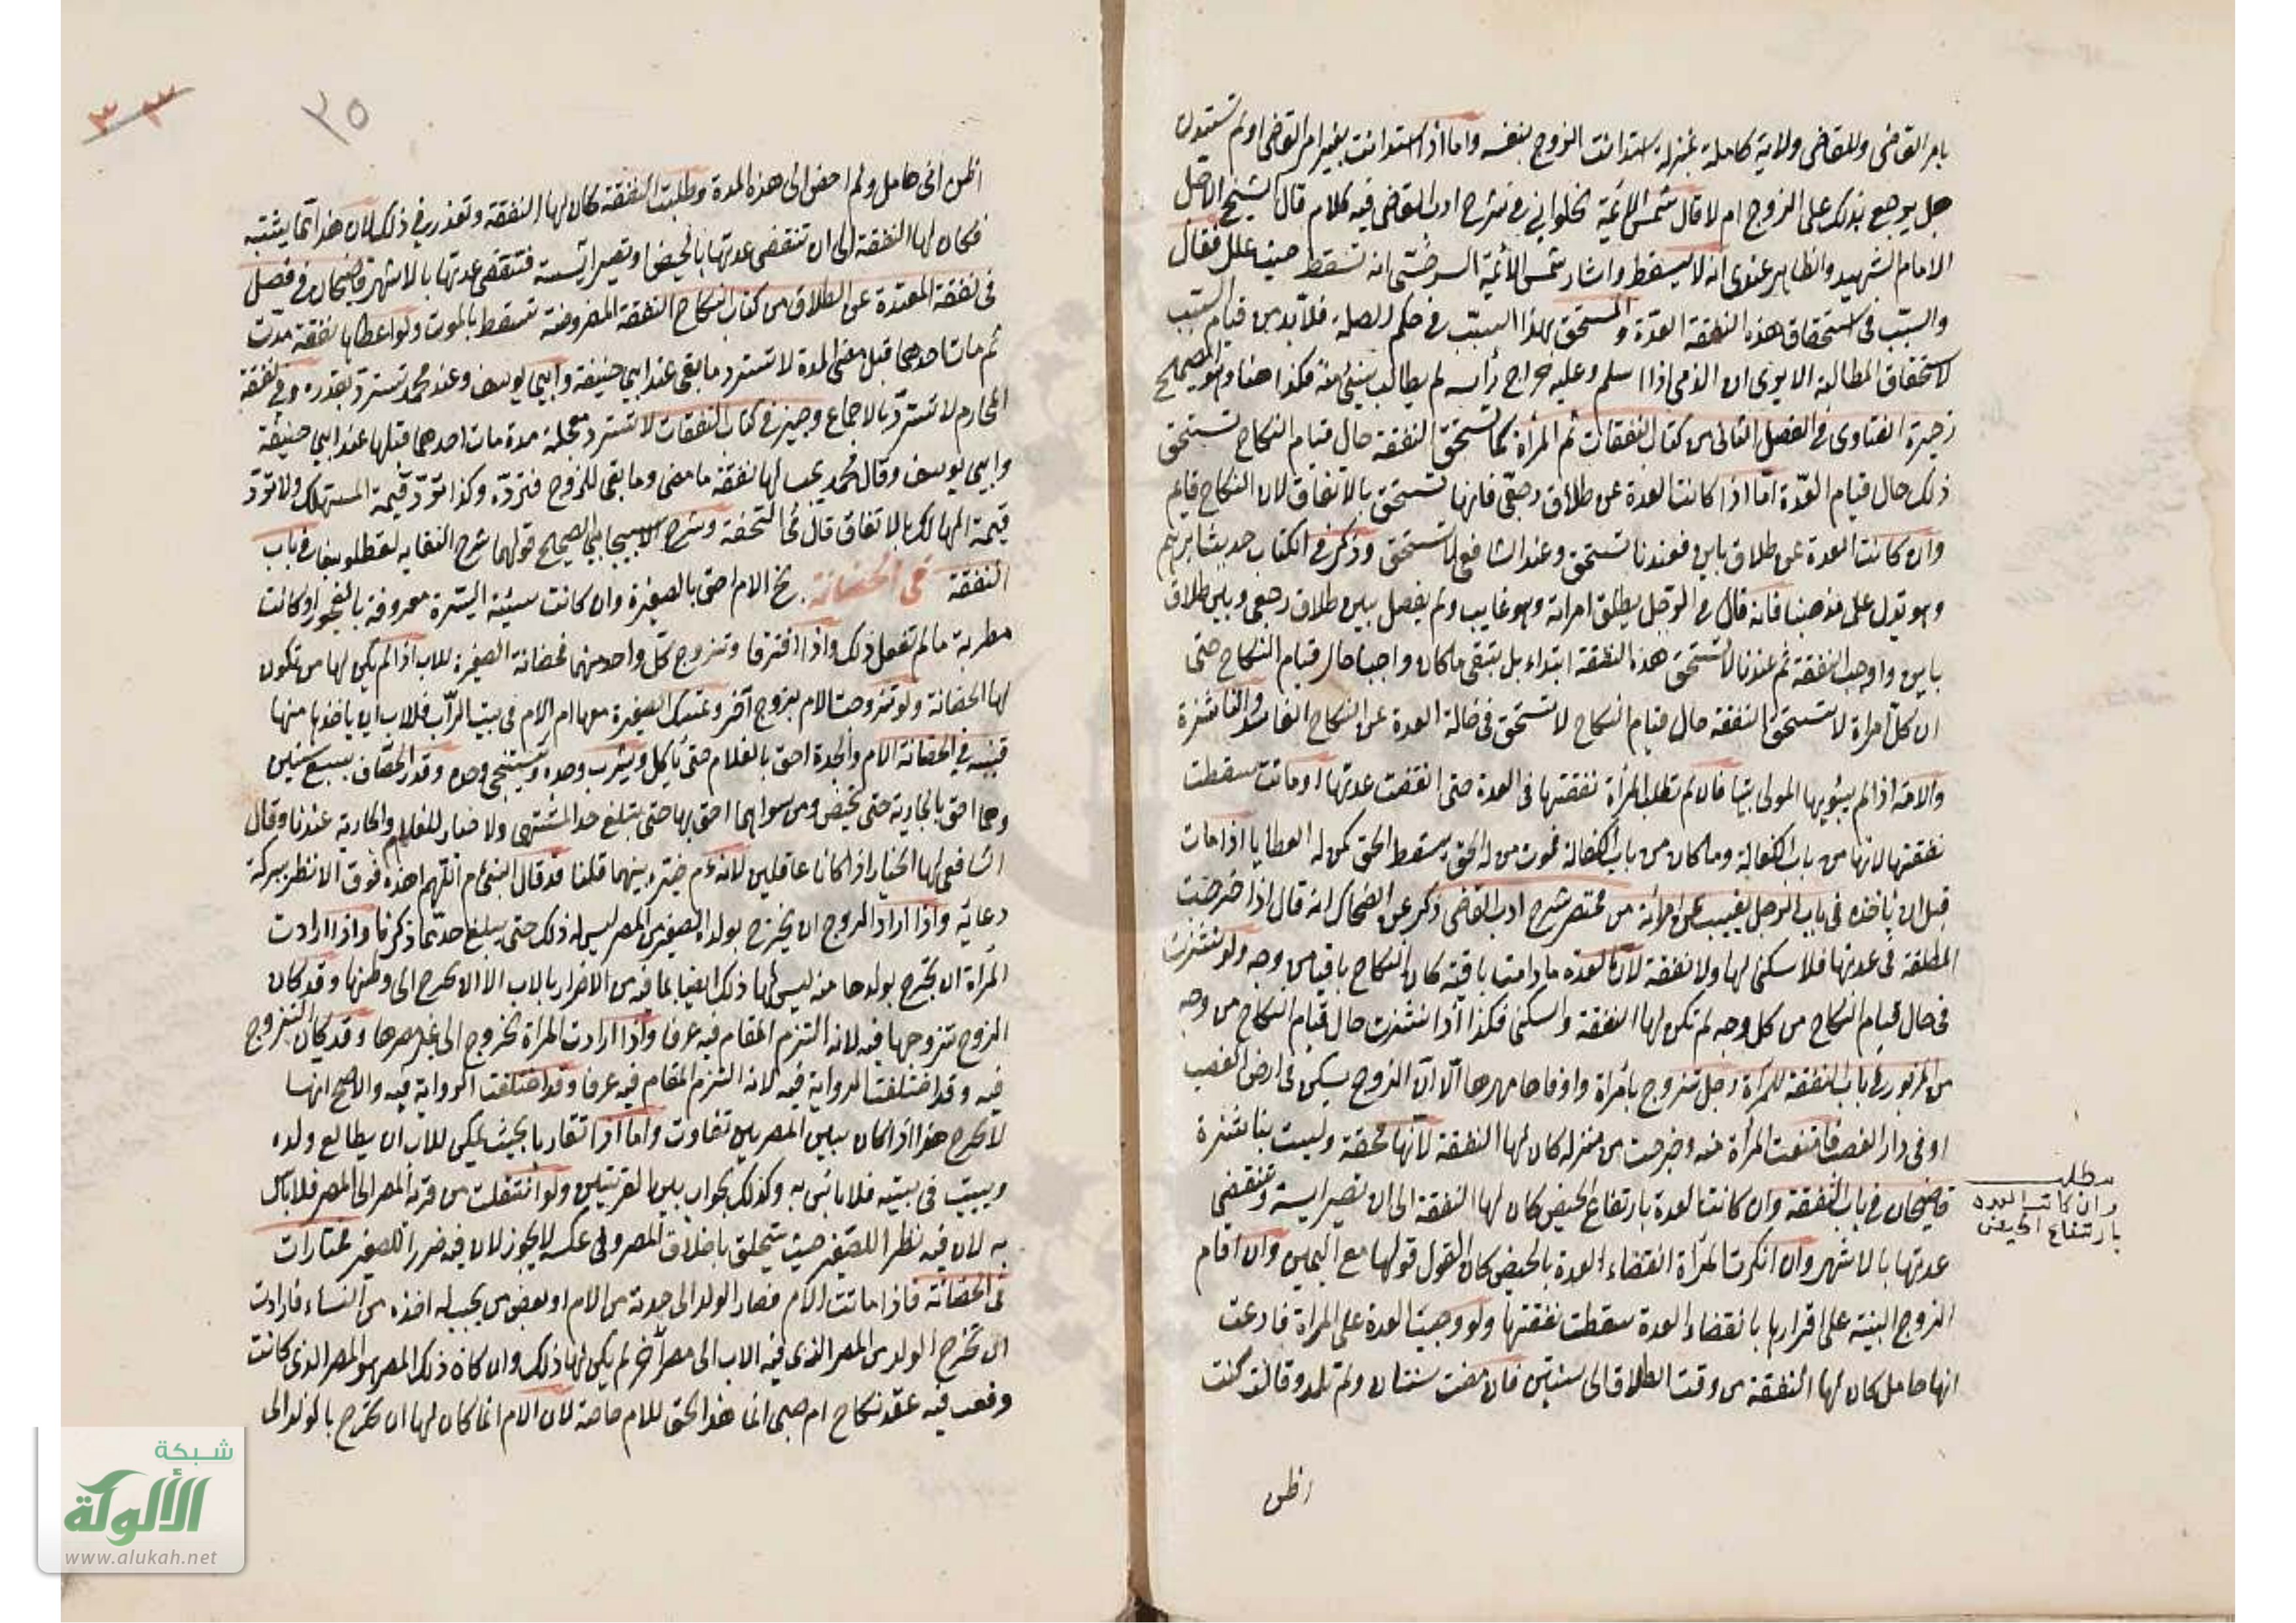 بامر القاضى وللقاضى ولاية كاملة بمنزلة استدانت الزوج بنفسه واما اذا استدانت بغير امر القاضى او لم تستدن
هل يرجع بذلك على الزوج ام لا قال شمس الائمة الحلوانى فى شرح ادب القاضى فيه كلام قال الشيخ الاجل
الامام الشهيد والظاهر عندى انه لا يسقط واشار شمس الأئمة السرخسى انه تسقط حيث علل فقال
والسبب فى استحقاق هذه النفقة العدة والمستحق بهذا السبب فى حكم الصلة فلا بد من قيام السبب
لاستحقاق المطالبة الا يرى ان الذمى اذا اسلم وعليه خراج رأسه لم يطالب بشئ منه فكذا هنا وهو الصحيح
ذخيرة الفتاوى فى الفصل الثانى من كتاب النفقات ثم المرأة كما تستحق النفقة حال قيام النكاح تستحق
ذلك حال قيام العدة امّا اذا كانت العدة عن طلاق رجعى فانها تستحق بالاتفاق لان النكاح قايم
وان كانت العدة عن طلاق باين فعندنا تستحق وعند الشافعى لا تستحق وذكر فى الكتاب حديث ابراهيم
وهو يدل على مذهبنا فانه قال فى الرجل يطلق امراته وهو غايب ولم يفصل بين طلاق رجعى وبين طلاق
باين واوجب النفقة ثم عندنا لا تستحق هذه النفقة ابتداء بل يبقى ما كان واجبا حال قيام النكاح حتى
ان كل امراة لا تستحق النفقة حال قيام النكاح لا تستحق فى حالة العدة عن النكاح الفاسد والناشزة
والامة اذا لم يبوّيها المولى بيتا فان لم تطلب المرأة نفقتها فى العدة حتى انقضت عدتها او ماتت سقطت
نفقتها لانها من باب الكفالة وما كان من باب الكفالة فموت من له الحق يسقط الحق كمن له العطايا اذا مات
قبل ان يأخذه فى باب الرجل يغيب عن امرأته من مختصر شرح ادب القاضى ذكر عن الضحاك انه قال اذا خرجت
المطلقة فى عدتها فلا سكنى لها ولا نفقة لان العدة ما دامت باقية كان النكاح باقيا من وجه ولو نشزت
فى حال قيام النكاح من كل وجه لم تكن لها النفقة والسكنى فكذا اذا نشزت حال قيام النكاح من وجه
من المزبور فى باب النفقة للمرأة رجل تزوج بأمراة واوفاها مهرها الّا انّ الزوج يسكن فى ارض الغصب
او فى دار الغصب فامتنعت المرأة منه وخرجت من منزله كان لها النفقة لأنها محقة وليست بناشزة
قاضيخان فى باب النفقة وان كانت العدة بارتفاع الحيض كان لها النفقة الى ان تصير ايسة وتنقضى
عدتها بالاشهر وان انكرت المرأة انقضاء العدة بالحيض كان القول قولها مع اليمين وان اقام
الزوج البينة على اقرارها بانقضاء العدة سقطت نفقتها ولو وجبت العدة على المراة فادعت
انها حامل كان لها النفقة من وقت الطلاق الى سنتين فان مضت سنتان ولم تلد وقالت كنت
اظن
مطلب
وان كانت العدة
بارتفاع الحيض
٣٥
٣٣
اظن انى حامل ولم احض الى هذه المدة وطلبت النفقة كان لها النفقة وتعذر فى ذلك لان هذا مما يشتبه
فكان لها النفقة الى ان تنقضى عدتها بالحيض او تصير ايسة فتنقضى عدتها بالاشهر قاضيخان فى فصل
فى نفقة المعتدة عن الطلاق من كتاب النكاح النفقة المفروضة تسقط بالموت ولو اعطاها نفقة مدّت
ثم مات احدهما قبل مضى المدة لا تسترد ما بقى عند ابى حنيفة وابى يوسف وعند محمد تسترد بقدره وفى نفقة
المحارم لا تستردّ بالاجماع وجيز فى كتاب النفقات لا تسترد معجلة مدة مات احدهما قبلها عند ابى حنيفة
وابى يوسف وقال محمد يجب لها نفقة ما مضى وما بقى للزوج فتردّه وكذا تردّ قيمة المستهلك ولا تردّ
قيمة الهالك بالاتفاق قال فى التحفة وشرح الاسبيجابى الصحيح قولهما شرح النقايه لقطلوبغا فى باب
النفقة فى الحضانة الام احق بالصغيرة وان كانت سيئة السيرة معروفة بالفجور او كانت
مطربة ما لم تفعل ذلك واذا افترقا وتزوج كلّ واحد منهما فحضانة الصغيرة للاب اذا لم يكن لها من تكون
لها الحضانة ولو تزوجت الام بزوج آخر وتمسك الصغيرة معها ام الام فى بيت الرّاب فللاب ان ياخذها منها
قنيه فى الحضانة الام والجدة احق بالغلام حتى يأكل ويشرب وحده ويستنجى وحده وقدر الخصّاف بسبع سنين
وهما احق بالجارية حتى تحيض ومن سواهما احق بها حتى تبلغ حد المشتهى ولا خيار للغلام والجارية عندنا وقال
الشافعى لها الخيار اذا كانا عاقلين لانه ءم خير بينهما قلنا قد قال النبى ءم اللهم اهده فوفق الانظر ببركة
دعائه واذا اراد الزوج ان يخرج بولده الصغير من المصر ليس له ذلك حتى يبلغ حدّ ما ذكرنا واذا ارادت
المرأة ان تخرج بولدها منه ليس لها ذلك ايضا لما فيه من الاضرار بالاب الا ان تخرج الى وطنها وقد كان
الزوج تزوجها فيه لانه التزم المقام فيه عرفا واذا ارادت المرأة الخروج الى غير مصرها وقد كان التزوج
فيه وقد اختلفت الرواية فيه لانه التزم المقام فيه عرفا وقد اختلفت الرواية فيه والاصح انها
لا تخرج هذا اذا كان بين المصرين تفاوت واما اذا تقاربا بحيث يمكن للاب ان يطالع ولده
ويبيت فى بيته فلا باس به وكذلك الجواب بين القريتين ولو انتقلت من قرية المصر الى المصر فلا بأس
به لان فيه نظرا للصغير حيث يتخلق باخلاق المصر وفى عكسه لا يجوز لان فيه ضررا للصغير مختارات
فى الحضانة فاذا ماتت الام فصار الولد الى جدته من الام او بعض من يجب له اخذه من النساء فارادت
ان تخرج الولد من المصر الذى فيه الاب الى مصر آخر لم يكن لها ذلك وان كان ذلك المصر هو المصر الذى كانت
وقعت فيه عقد نكاح ام صبى انما هذا الحق للام خاصة لان الام انما كان لها ان تخرج بالولد الى
شبكة
الألوكة
www.alukah.net